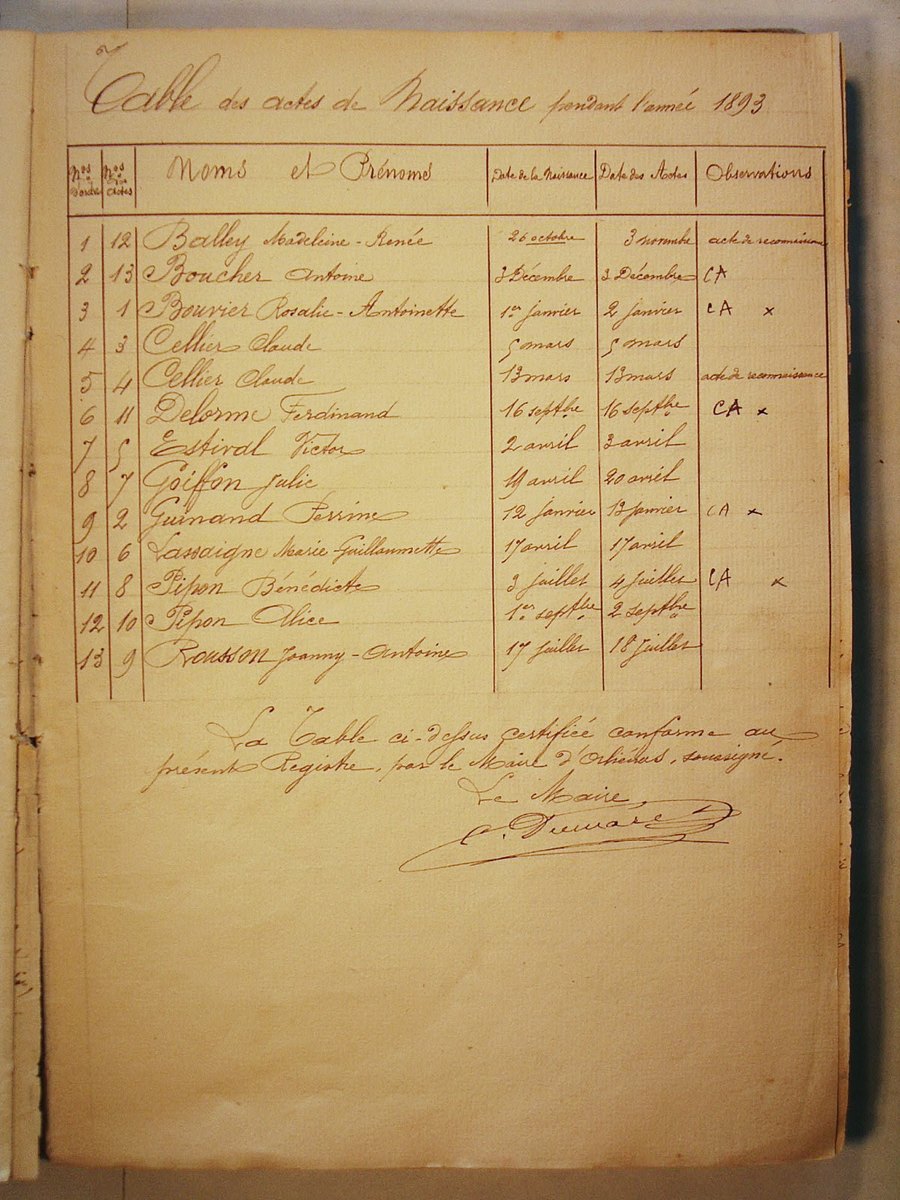 Table des actes de Naissance pendant l'année 1893
Nos d'ordre Nos des Actes Noms et Prénoms Date de la Naissance Date des Actes Observations
1 12 Balley Madeleine-Renée 26 octobre 3 novmbe acte de reconnaissance
2 13 Boucher Antoine 3 Décembre 3 Décembre CA
3 1 Bouvier Rosalie-Antoinette 1er janvier 2 janvier CA x
4 3 Cellier Claude 5 mars 5 mars
5 4 Cellier Claude 13 mars 13 mars acte de reconnaissance
6 11 Delorme Ferdinand 16 septbre 16 septbre CA x
7 5 Estival Victor 2 avril 3 avril
8 7 Goiffon Julie 19 avril 20 avril
9 2 Guinand Perrine 12 janvier 13 janvier CA x
10 6 Lassaigne Marie-Guillaumette 17 avril 17 avril
11 8 Pipon Bénédicte 3 juillet 4 juillet CA x
12 10 Pipon Alice 1er septbre 2 septbre
13 9 Rousson Joanny-Antoine 17 juillet 18 juillet
La Table ci-dessus certifiée conforme au
présent Registre, par le Maire d'Orliénas, soussigné.
Le Maire,